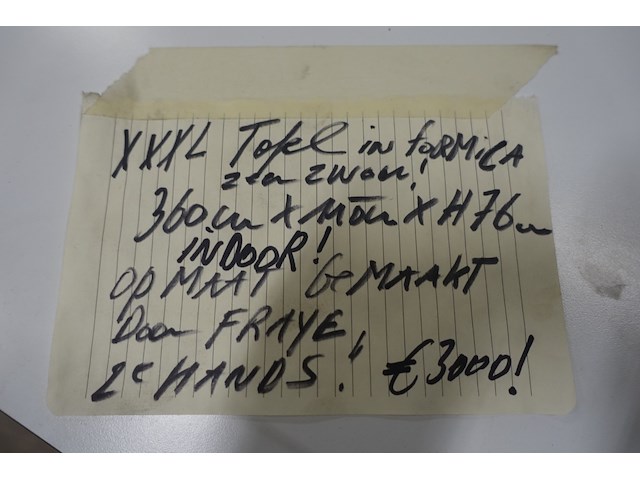 XXXL Tafel in FORMiCA
zeer zwaar!
360cm X 110cm X H76cm
INDOOR!
OP MAAT GEMAAKT
Door FRAYE
2e HANDS! €3000!